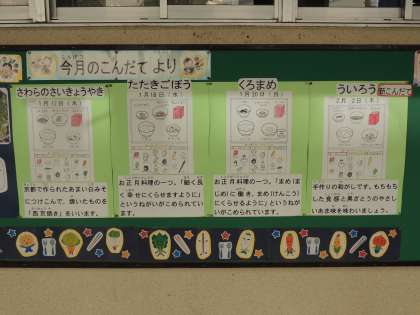 今月のこんだて より
さわらのさいきょうやき
1月12日(木)
京都で作られたあまい白みそ
につけこんで、焼いたものを
「西京焼き」をいいます。
たたきごぼう
1月18日(水)
お正月料理の一つ。「細く長
く幸せにくらせますように」
というねがいがこめられてい
ます。
くろまめ
お正月料理の一つ。「まめ(ま
じめ)に働き、まめ(けんこう)
にくらせるように」というね
がいがこめられています。
ういろう
新こんだて
2月2日(木)
手作りの和がしです。もちもち
した食感と黒ざとうのやさし
いあま味を味わいましょう。